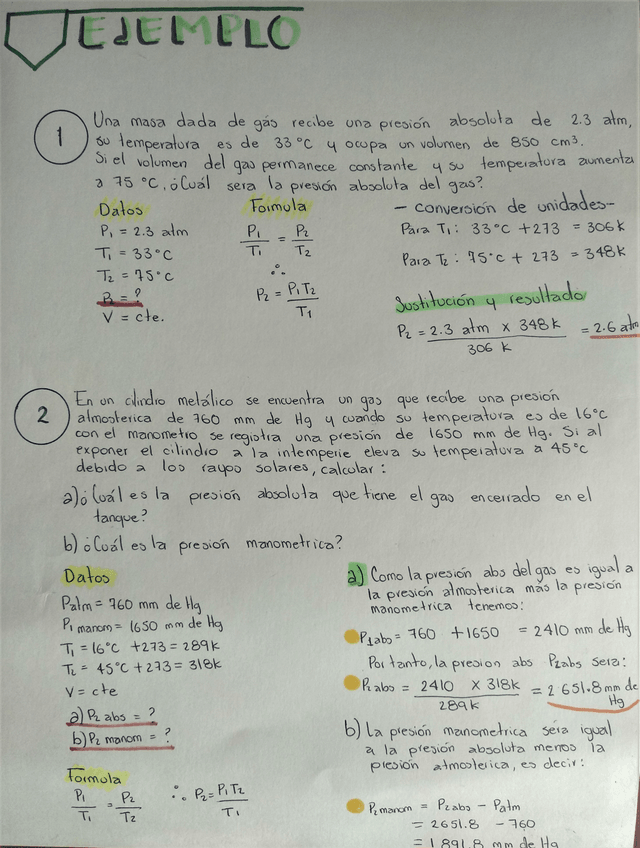 EJEMPLO
1
Una masa dada de gas recibe una presión absoluta de 2.3 atm,
su temperatura es de 33°C y ocupa un volumen de 850 cm³.
Si el volumen del gas permanece constante y su temperatura aumenta
a 75 °C, ¿Cuál sera la presión absoluta del gas?
Datos
P₁ = 2.3 atm
T₁ = 33°C
T₂ = 75°C
P₂ = ?
V = cte.
Formula
P₁/T₁ = P₂/T₂
∴
P₂ = P₁T₂/T₁
- conversión de unidades-
Para T₁: 33°C +273 = 306k
Para T₂: 75°C + 273 = 348k
Sustitución y resultado
P₂ = 2.3 atm x 348k / 306 k = 2.6 atm
2
En un cilindro metálico se encuentra un gas que recibe una presión
atmosferica de 760 mm de Hg y cuando su temperatura es de 16°C
con el manometro se registra una presión de 1650 mm de Hg. Si al
exponer el cilindro a la intemperie eleva su temperatura a 45°C
debido a los rayos solares, calcular:
a) ¿Cuál es la presión absoluta que tiene el gas encerrado en el
tanque?
b) ¿Cuál es la presión manometrica?
Datos
Patm = 760 mm de Hg
P₁ manom = 1650 mm de Hg
T₁ = 16°C +273 = 289k
T₂ = 45°C +273 = 318k
V = cte
a) P₂ abs = ?
b) P₂ manom = ?
Formula
P₁/T₁ = P₂/T₂ ∴ P₂ = P₁T₂/T₁
a) Como la presión abs del gas es igual a
la presión atmosferica más la presión
manometrica tenemos:
P₁abs = 760 + 1650 = 2410 mm de Hg
Por tanto, la presion abs P₂abs sera:
P₂ abs = 2410 X 318k / 289k = 2 651.8 mm de Hg
b) La presión manometrica sera igual
a la presión absoluta menos la
presión atmosferica, es decir:
P₂ manom = P₂abs - Patm
= 2651.8 - 760
= 1 891.8 mm de Hg